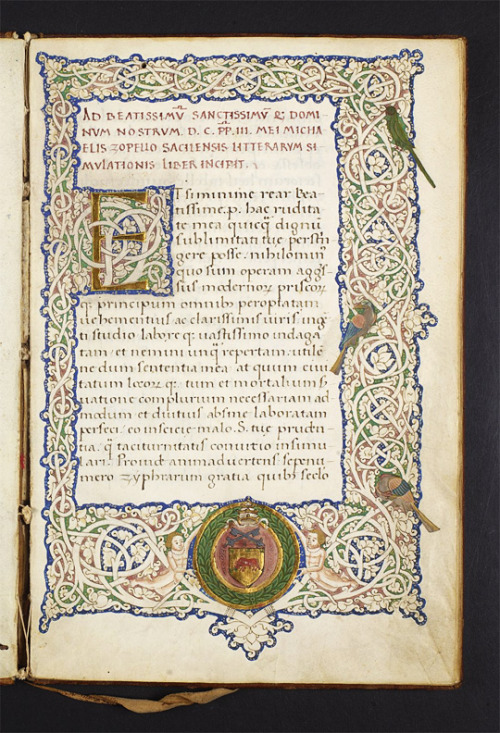 AD BEATISSIMŪ SANCTISSIMŪ & DOMI-
NVM NOSTRVM. D. C. PP. III. MEI MICHA
ELIS ZOPELLO SACILENSIS LITTERARVM SI-
MVLATIONIS LIBER INCIPIT.
ETsi minime rear Bea-
tissime. p. hac rudita-
te mea quicq̃ dignũ
sublimitati tue perstin
gere posse. nihilominꝰ
quo sum operam
modernoꝝ priscoꝝ
q; principum omnibꝰ peroptatam
uehementiuſ ac clarissimis uiris ingẽ
ti studio labore q; uastissimo indaga-
tam. et nemini unq̃ repertam. utile
ne dum sententia mea. at quum ciui
tatum locor̃ q; tum et mortalium
uatione complurium necessariam ad
modum et diutius absque laboratam
perseci. eo inscieie malo. S. tue pruden
tia. q̃ taciturnitatis conuitio insimu
lari. Proinde animaduertens sepenu
mero zyphrarum gratia quibꝰ seclo